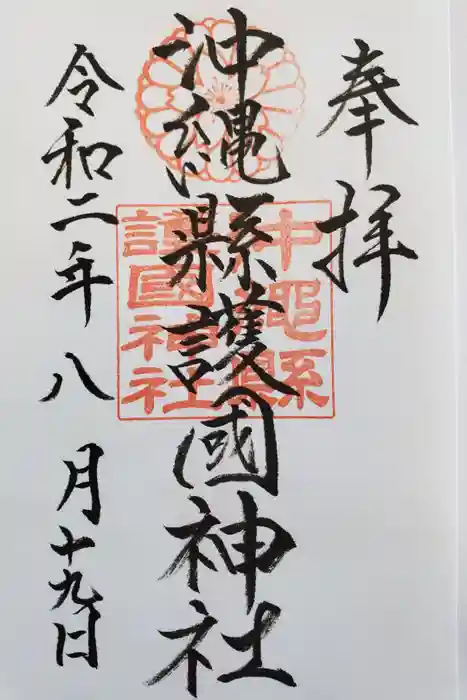 奉拝
沖縄縣護國神社
沖縄縣護國神社
令和二年八月十九日